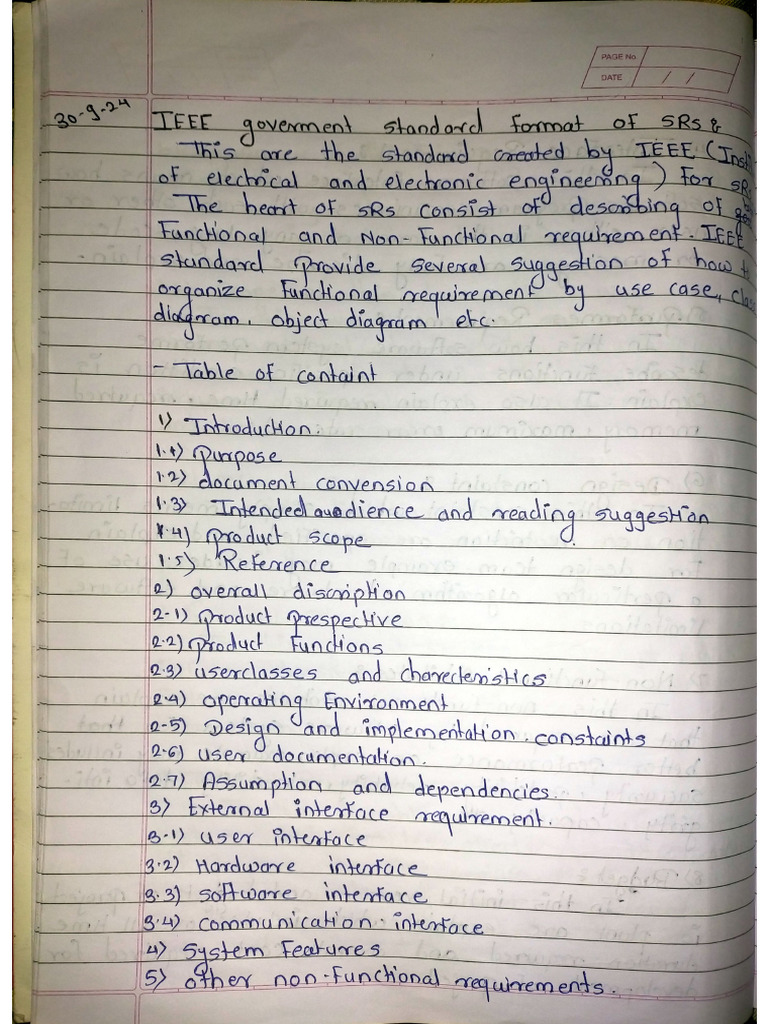 PAGE No.
DATE / /
30-9-24
IEEE goverment standard format of SRS &
This are the standard created by IEEE (Insti
of electrical and electronic engineering) for SRS
The heart of SRS consist of describing of
Functional and Non-Functional requirement. IEEE
standard provide several suggestion of how t
organize functional requirement by use case, class
diagram, object diagram etc.
- Table of containt
1) Introduction.
1.1) Purpose
1.2) document convension
1.3) Intended audience and reading suggestion
1.4) Product scope
1.5) Reference
2) overall discription
2-1) Product prespective
2.2) Product Functions
2.3) userclasses and charecteristics
2.4) operating Environment
2-5) Design and implementation constaints
2.6) user documentation.
2.7) Assumption and dependencies.
3) External interface requirement.
3-1) user interface
3.2) Hardware interface
3.3) software interface
3.4) communication interface
4) system features
5) other non-functional requirements.